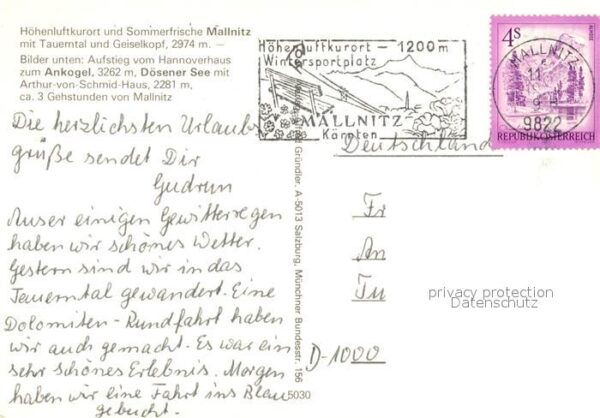 Höhenluftkurort und Sommerfrische Mallnitz
mit Tauerntal und Geiselkopf, 2974 m. —
Bilder unten: Aufstieg vom Hannoverhaus
zum Ankogel, 3262 m, Dösener See mit
Arthur-von-Schmid-Haus, 2281 m,
ca. 3 Gehstunden von Mallnitz
Höhenluftkurort — 1200m
Wintersportplatz
MALLNITZ
Kärnten
4S
ALMSEE
REPUBLIK ÖSTERREICH
MALLNITZ
9822
Die herzlichsten Urlaubs
grüße sendet Dir
Gudrun
Auser einigen Gewitterregen
haben wir schönes Wetter.
Gestern sind wir in das
Tauerntal gewandert. Eine
Dolomiten-Rundfahrt haben
wir auch gemacht. Es war ein
sehr schönes Erlebnis. Morgen
haben wir eine Fahrt ins Blau
gebucht.
Gründler, A-5013 Salzburg, Münchner Bundesstr. 156
5030
Deutschland
Fr
An
Tu
D-1000
privacy protection
Datenschutz